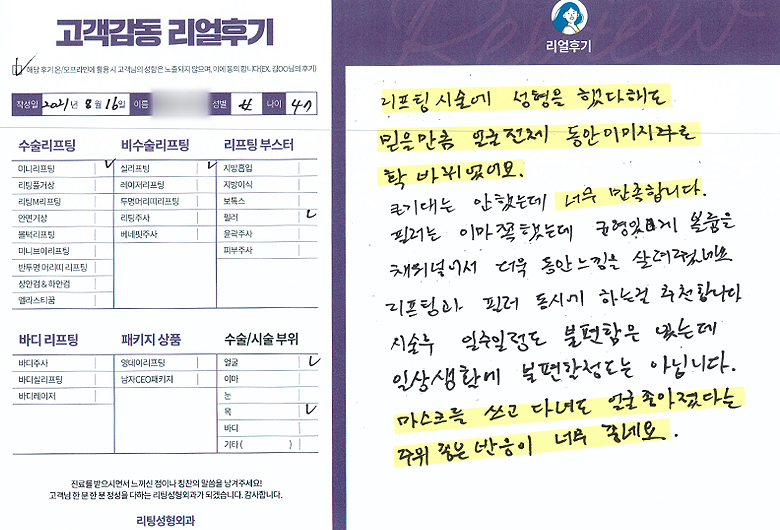 고객감동 리얼후기
해당 후기 온/오프라인에 활용 시 고객님의 성함은 노출되지 않으며, 이에 동의 합니다(EX. 김OO님의 후기)
작성일 2021년 8월 16일 이름 성별 女 나이 47
수술리프팅
미니리프팅
리팅풀거상
리팅M리프팅
안면거상
볼턱리프팅
미니브이리프팅
반투명 머리띠 리프팅
상안검 & 하안검
엘라스티꿈
비수술리프팅
실리프팅
레이저리프팅
투명머리띠리프팅
리팅주사
베네핏주사
리프팅 부스터
지방흡입
지방이식
보톡스
필러
윤곽주사
피부주사
바디 리프팅
바디주사
바디실리프팅
바디레이저
패키지 상품
영데이리프팅
남자CEO패키지
수술/시술 부위
얼굴
이마
눈
목
바디
기타 ( )
진료를 받으시면서 느끼신 점이나 칭찬의 말씀을 남겨주세요!
고객님 한 분 한 분 정성을 다하는 리팅성형외과가 되겠습니다. 감사합니다.
리팅성형외과
Review
리얼후기
리프팅 시술에 성형을 했다해도
믿을만큼 얼굴전체 동안이미지로
확 바뀌었어요.
큰기대는 안했는데 너무 만족합니다.
필러는 이마쪽했는데 균형있게 볼륨을
채워넣어서 더욱 동안느낌을 살려줬네요
리프팅과 필러 동시에 하는걸 추천합니다
시술후 일주일정도 불편함은 있는데
일상생활에 불편할정도는 아닙니다.
마스크를 쓰고 다녀도 얼굴좋아졌다는
주위 좋은 반응이 너무 좋네요.